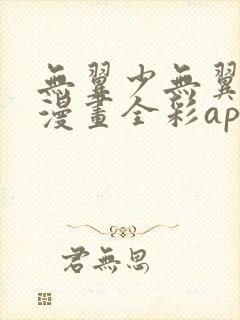 無翼少無翼
漫畫全彩ap
君無思